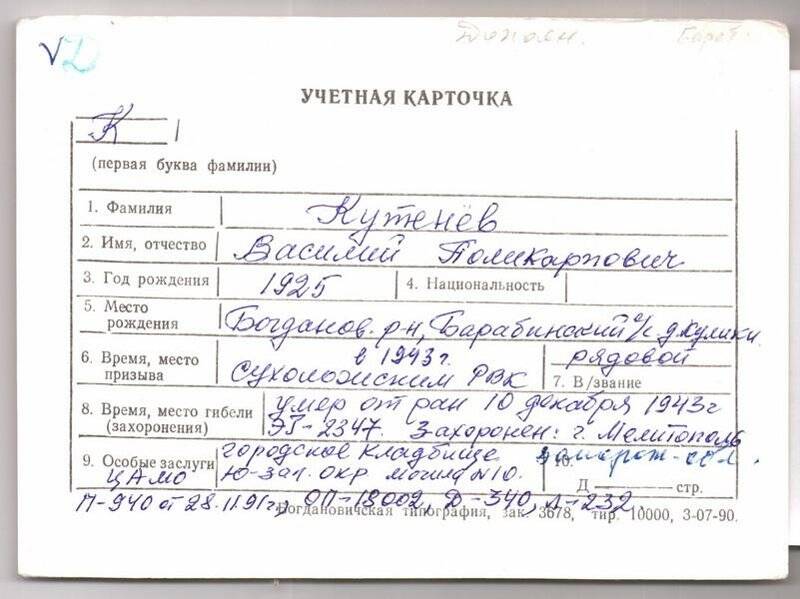 Дополн.
УЧЕТНАЯ КАРТОЧКА
К
(первая буква фамилии)
1. Фамилия Кутенёв
2. Имя, отчество Василий Поликарпович
3. Год рождения 1925 4. Национальность
5. Место рождения Богданов. р-н, Барабинский с/с. д. Кулики
6. Время, место призыва в 1943 г. Сухоложским РВК
рядовой
7. В/звание
8. Время, место гибели (захоронения) умер от ран 10 декабря 1943 г
ЭГ-2347. Захоронен: г. Мелитополь
9. Особые заслуги городское кладбище Запорож. обл. 10.
ЦАМО Ю-Зап. окр. могила N10. Д стр.
П-940 от 28.11.91 г., ОП-18002, Д-340, Л-232.
Богдановичская типография, зак. 3678, тир. 10000, 3-07-90.